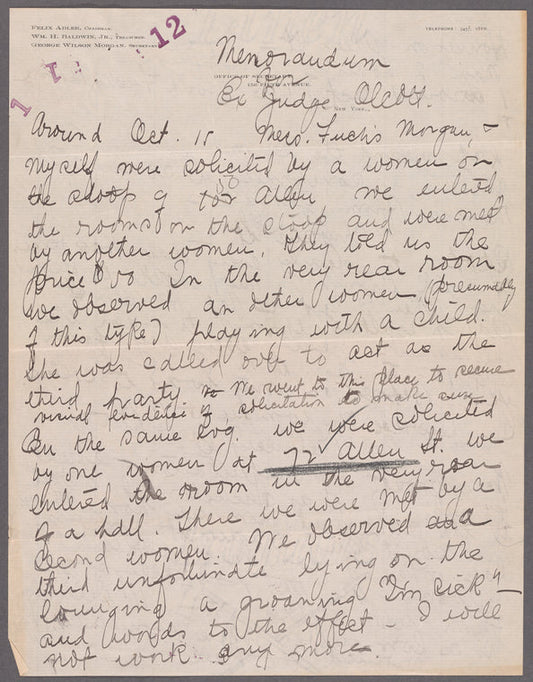 FELIX ADLER, CHAIRMAN.
WM. H. BALDWIN, JR., TREASURER.
GEORGE WILSON MORGAN, SECRETARY.
TELEPHONE
1 12
Memorandum
for
OFFICE OF SECRETARY
FIFTH AVENUE.
Ex Judge Olcott.
NEW YORK,
Around Oct. 15 Mess. Fuchs Morgan, +
myself were solicited by a women on
the stoop of Allen we entered
the rooms on the stoop and were met
by another women. They told us the
price $ 50 In the very rear room
we observed an other women (presumably
of this type) playing with a child.
She was called over to act as the
third party. We went to this place to secure
visual evidence of solicitation to make sure
On the same bvg. we were solicited
by one women at 72 Allen St. we
entered the room in the very rear
of a hall. There we were met by a
second women. We observed a
third unfortunate lying on the
lounging a groaning "I'm sick"
and words to the effect - I will
not work any more.